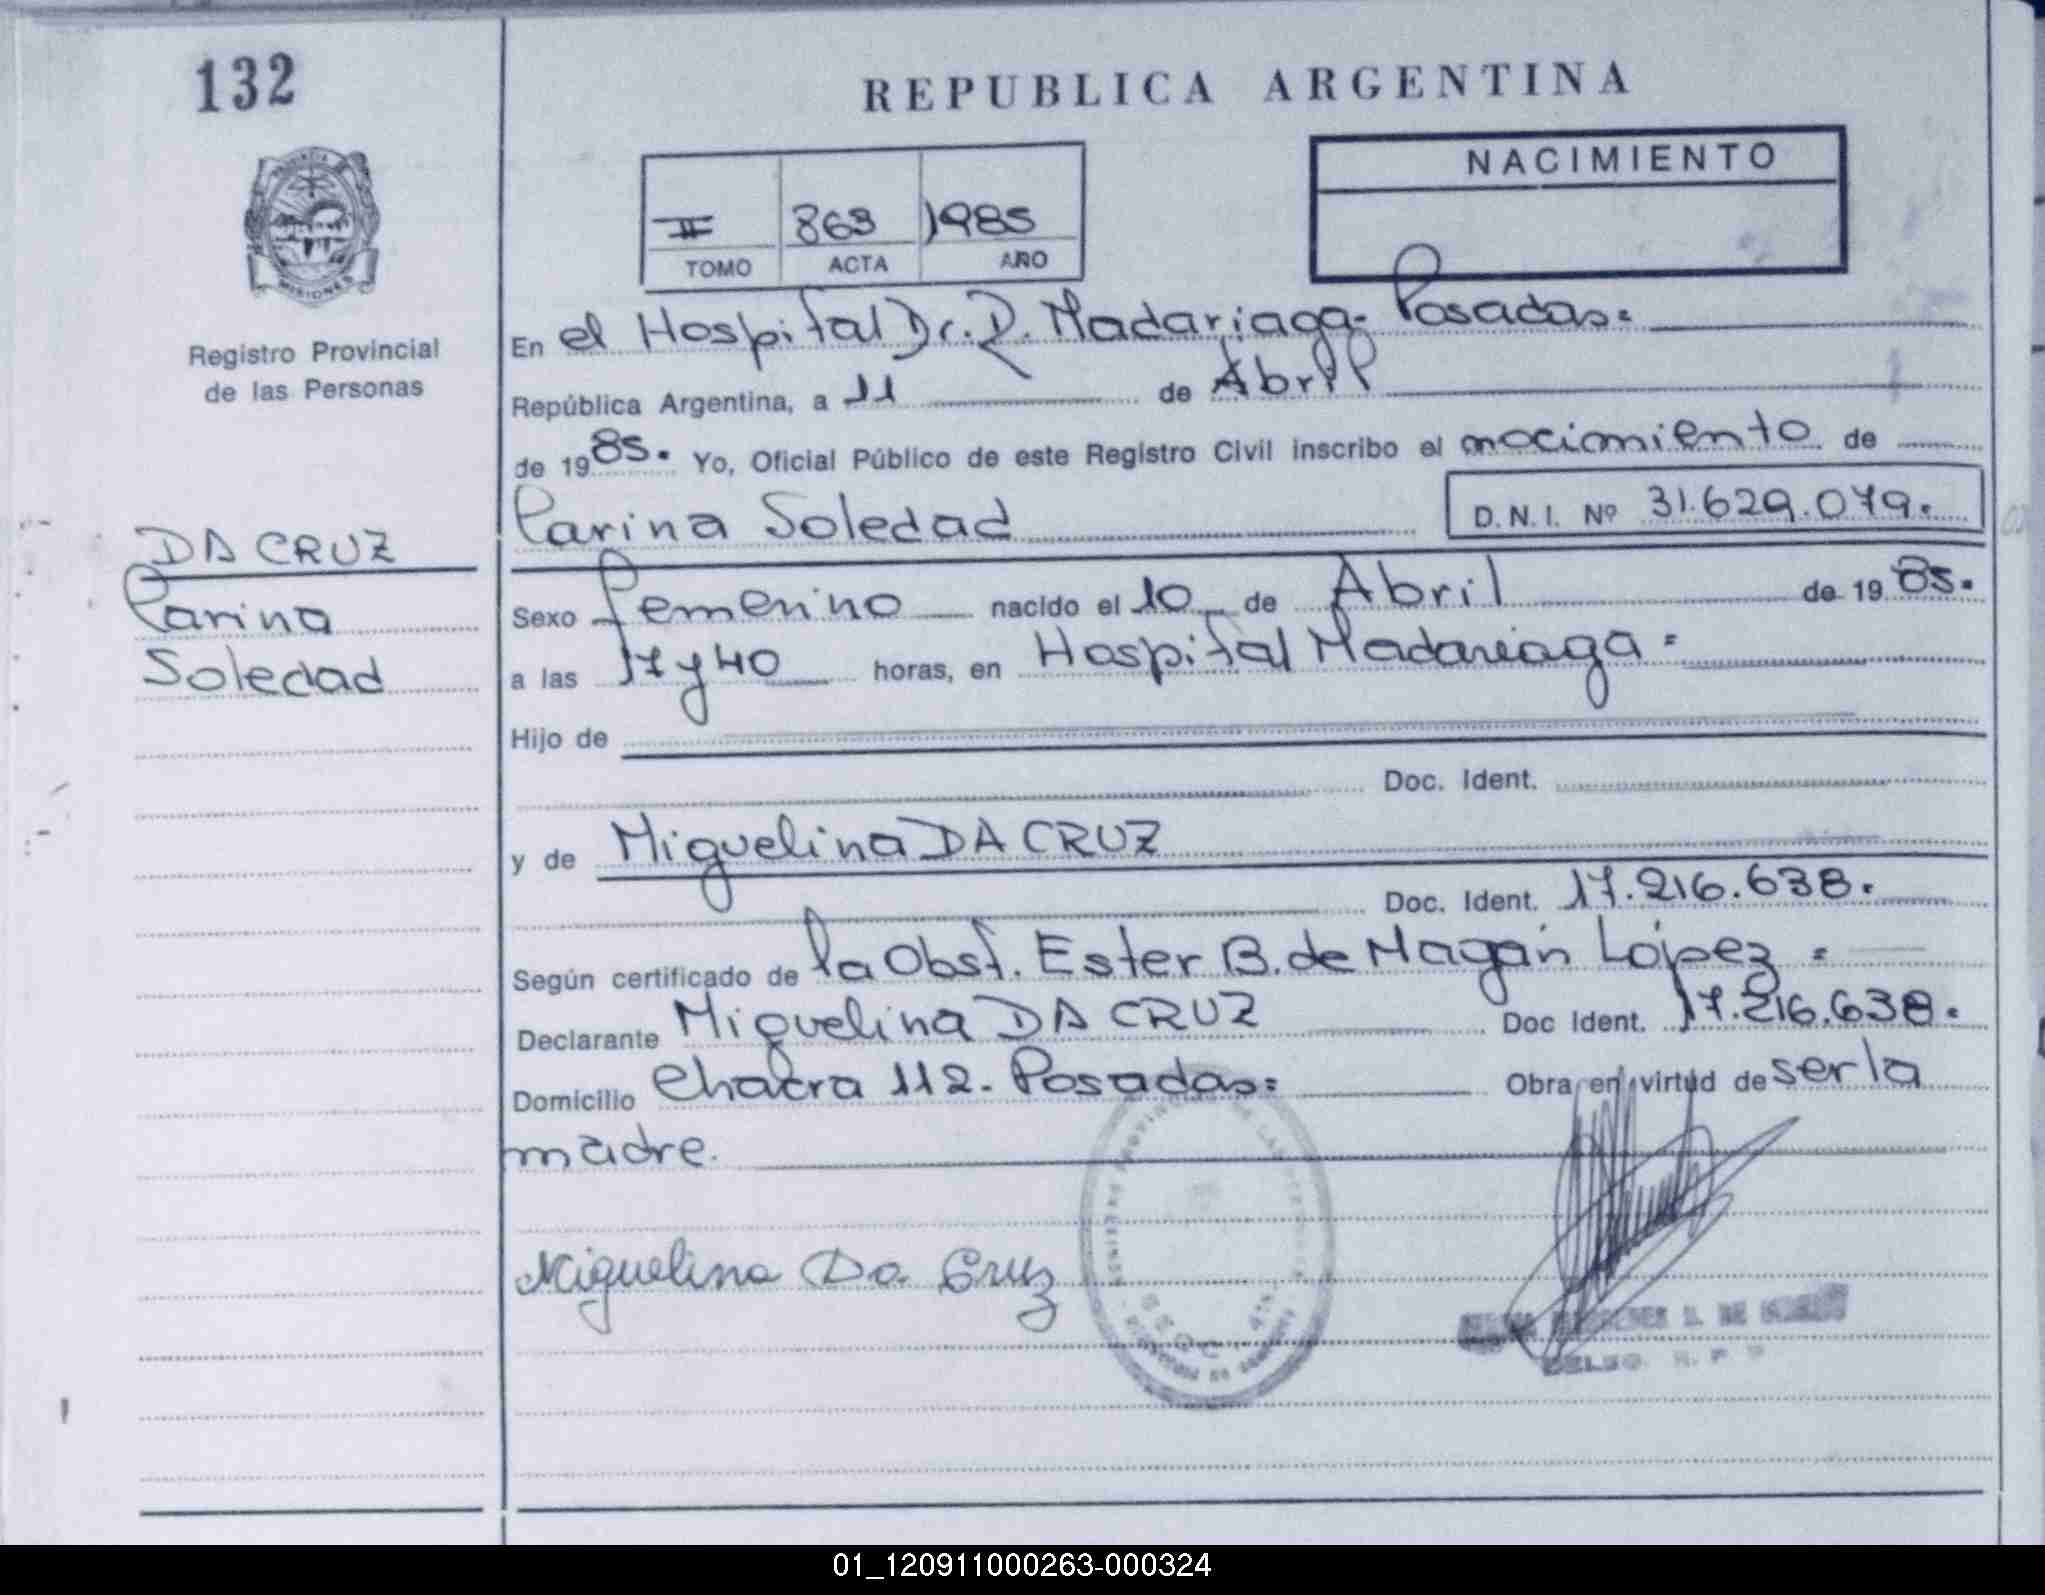 132
REPUBLICA ARGENTINA
NACIMIENTO
II 863 1985
TOMO ACTA AÑO
PROVINCIA
MISIONES
Registro Provincial
de las Personas
En el Hospital Dr. R. Madariaga- Posadas=
República Argentina, a 11 de Abril
de 1985. Yo, Oficial Público de este Registro Civil inscribo el nacimiento de
Carina Soledad D.N.I. Nº 31.629.079.
DA CRUZ
Carina
Soledad
Sexo femenino nacido el 10 de Abril de 1985.
a las 17 y 40 horas, en Hospital Madariaga =
Hijo de
Doc. Ident.
y de Miguelina DA CRUZ
Doc. Ident. 17.216.638.
Según certificado de la Obst. Ester B. de Magán López =
Declarante Miguelina DA CRUZ Doc Ident. 17.216.638.
Domicilio Chacra 112- Posadas= Obra en virtud de ser la
madre.
Miguelina Da Cruz
01_120911000263-000324